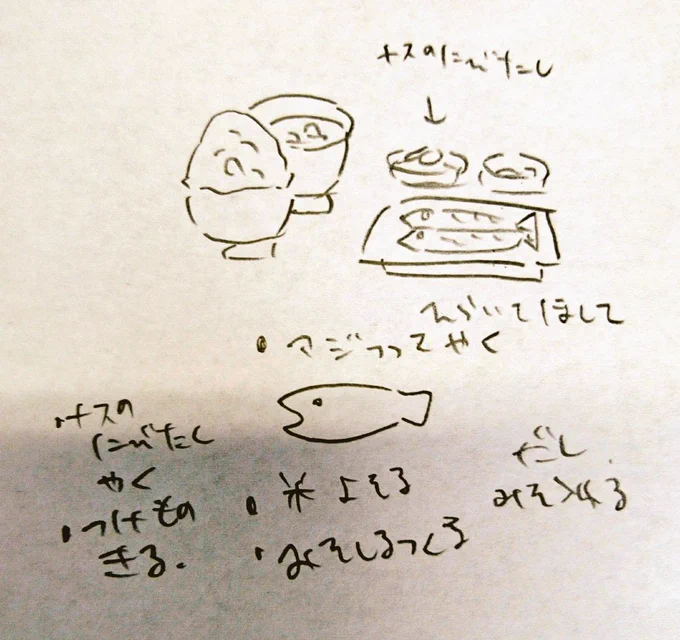 ナスのにびたし
ひらいてほして
・アジつってやく
・ナスの
にびたし
やく
・つけもの
きる.
・米よそる
・みそしるつくる
だし
みそ入れる